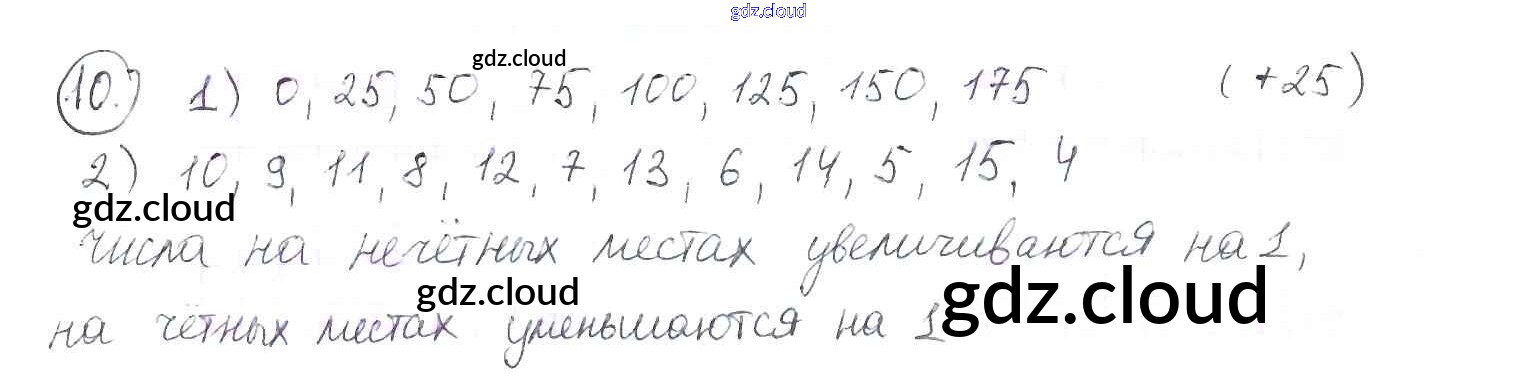 gdz.cloud
gdz.cloud
10. 1) 0, 25, 50, 75, 100, 125, 150, 175 (+25)
2) 10, 9, 11, 8, 12, 7, 13, 6, 14, 5, 15, 4
gdz.cloud
числа на нечётных местах увеличиваются на 1,
gdz.cloud gdz.cloud
на чётных местах уменьшаются на 1